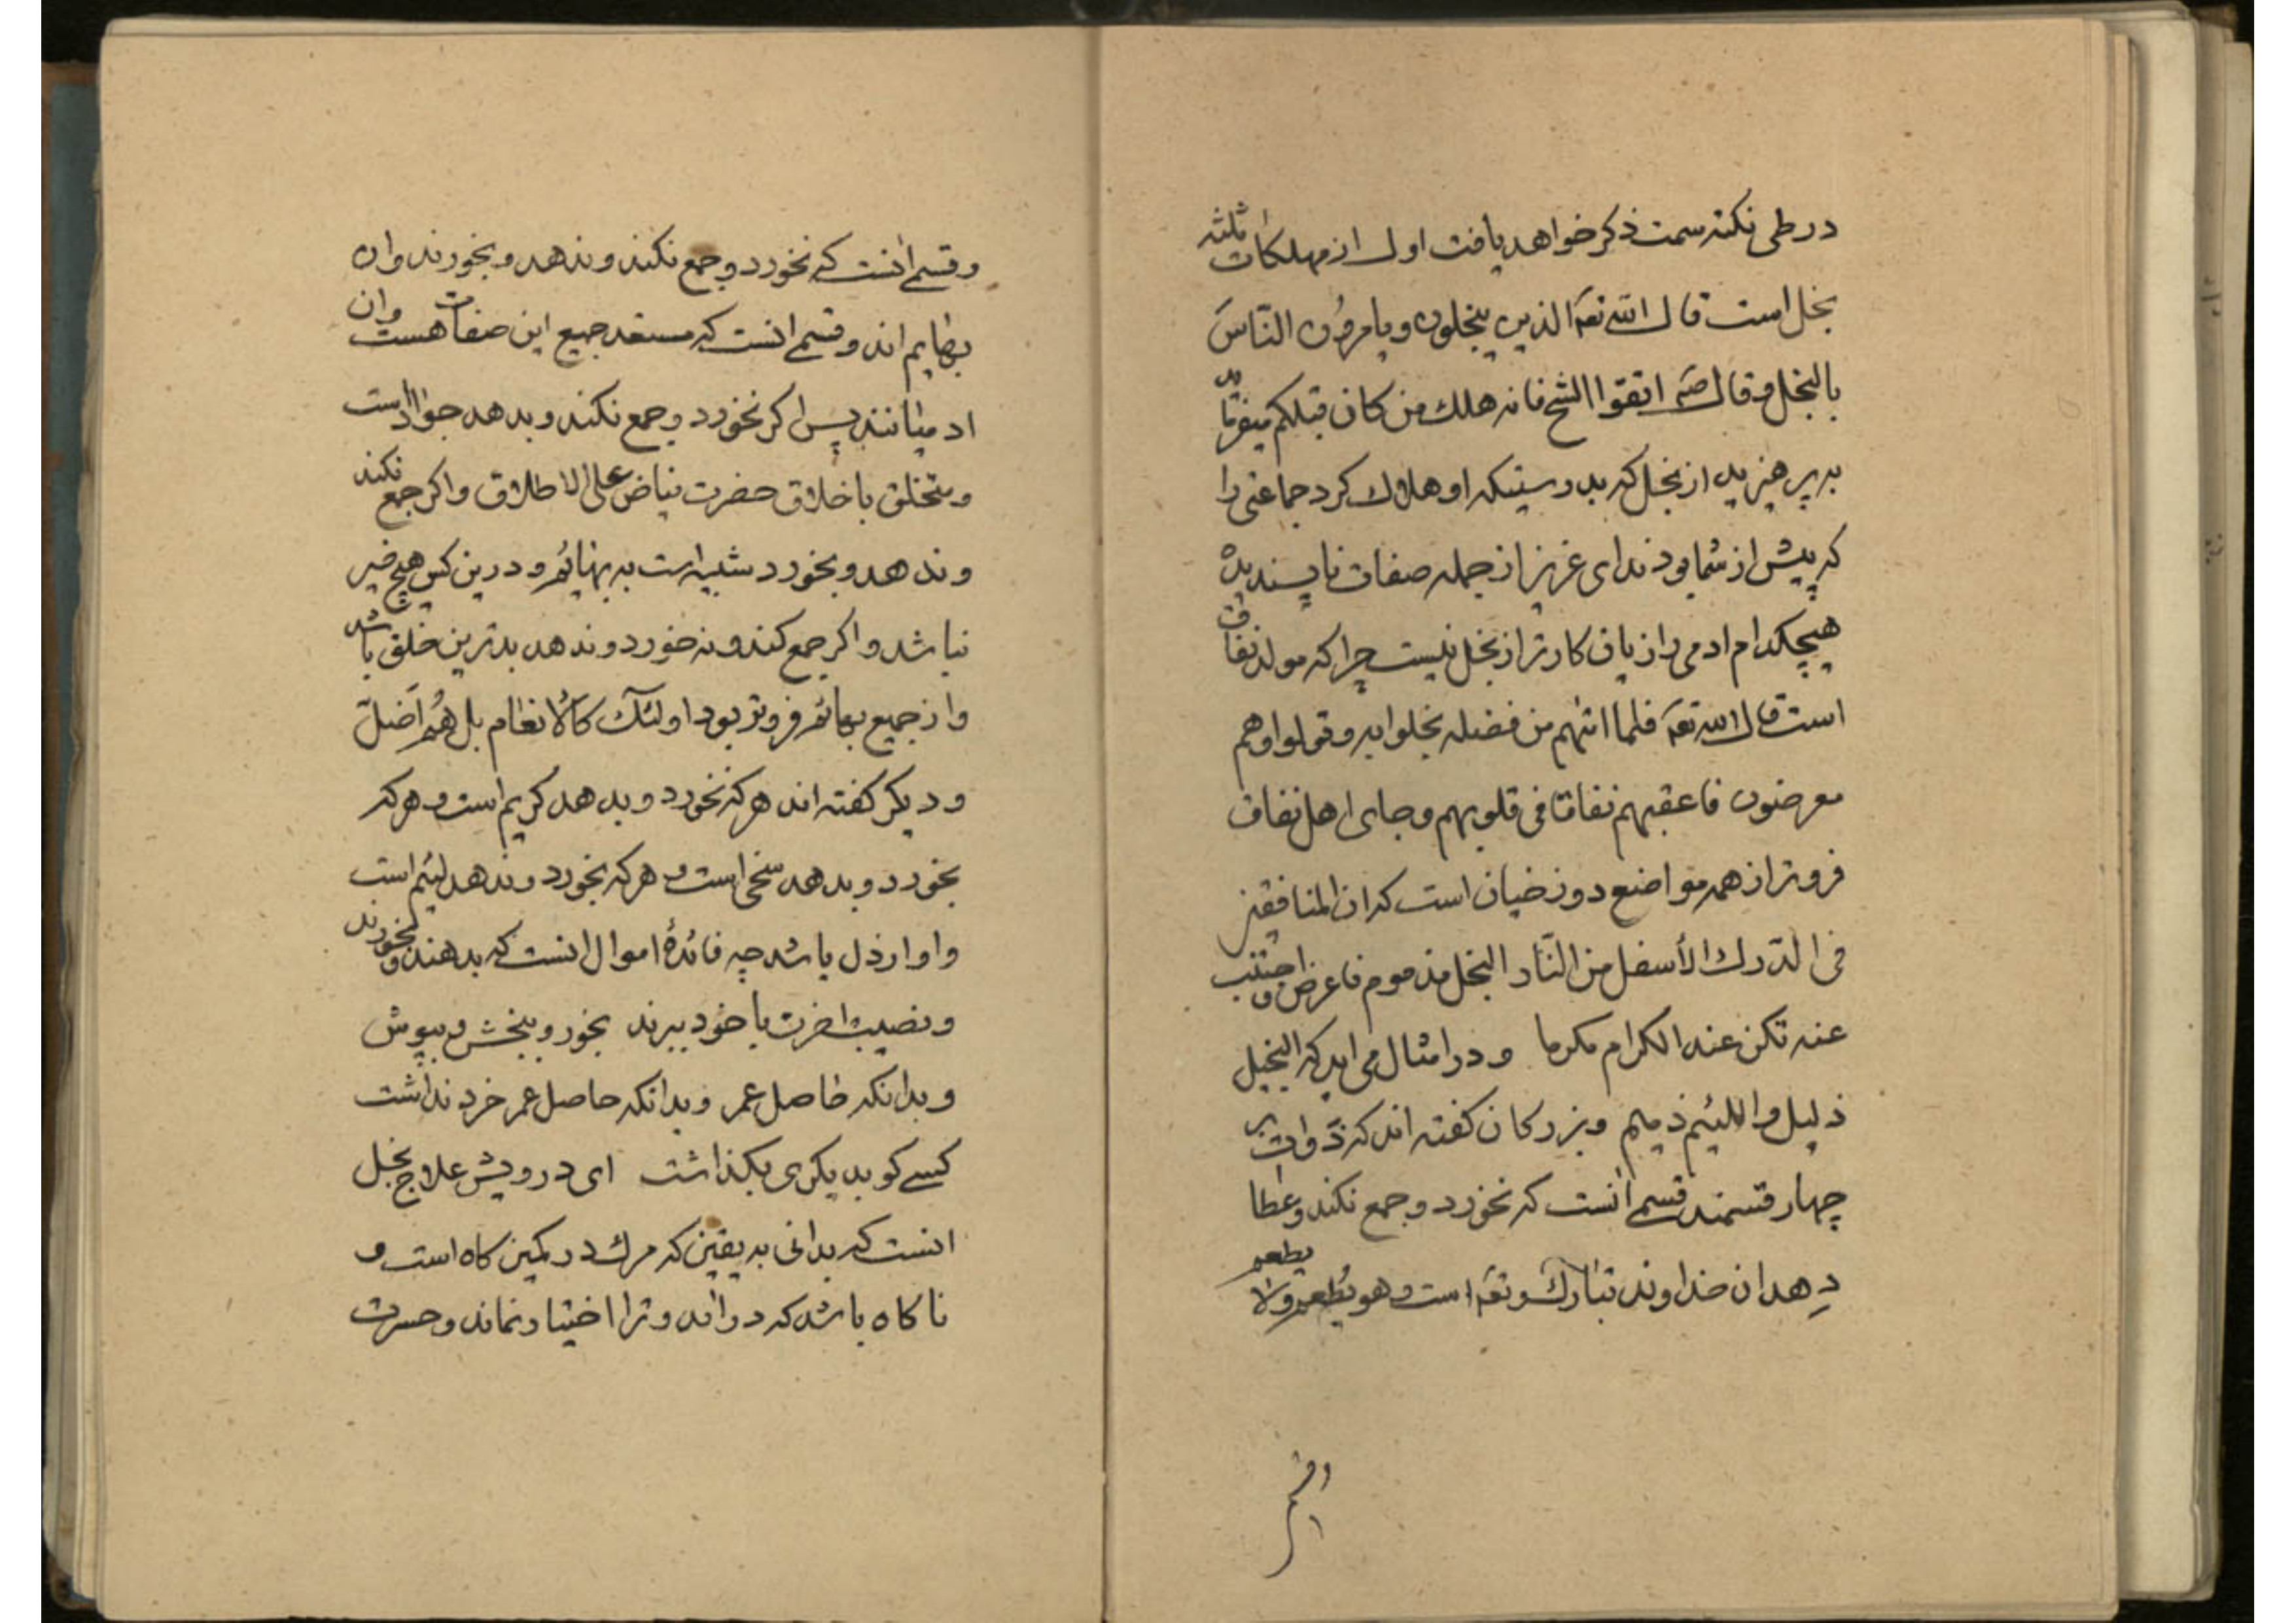 در طی نکته سمت ذکر خواهد یافت اول از مهلکات ثلثه
بخل است قال الله تعه الذین یبخلون و یامرون الناس
بالبخل و قال صه اتقوا الشح فانه هلك من کان قبلکم میفرماید
به پرهیزید از بخل که بدرستیکه او هلاك کرد جماعتی را
که پیش از شما بودند ای عزیز از جمله صفات ناپسندیده
هیچکدام ادمی را زیان کارتر از بخل نیست چرا که مولد نفاق
است قال الله تعه فلما اتیهم من فضله بخلوا به و تولوا وهم
معرضون فاعقبهم نفاقا فی قلوبهم و جای اهل نفاق
فروتر از همه مواضع دوزخیان است که ان المنافقین
فی الدرك الأسفل من النار البخل مذموم فاعرض و اجتنب
عنه تکن عند الکرام مکرما و در امثال می اید که البخیل
ذلیل و اللئیم ذمیم و بزرکان کفته اند که ذوات بر
چهار قسمند قسمی انست که نخورد و جمع نکند و عطا
دهد ان خداوند تبارك و تعه است و هو یطعم ولا یطعم
و قسم
و قسمی انست که نخورد و جمع نکند و ندهد و بخورند وان
بهایم اند و قسمی انست که مستعد جمیع این صفات هست وان
ادمیانند پس اکر نخورد و جمع نکند و بدهد جواد است
و متخلق باخلاق حضرت فیاض علی الاطلاق و اکر جمع نکند
و ندهد و بخورد شبیه است به بهائم و درین کس هیچ خیر
نباشد و اکر جمع کند و نه خورد و ندهد بدترین خلق باشد
و از جمیع بهائم فروتر بود اولئك کالانعام بل هم اضل
و دیکر کفته اند هر که نخورد و بدهد کریم است و هر که
بخورد و بدهد سخی است و هر که بخورد و ندهد لئیم است
و او ارذل باشد چه فائدهٔ اموال انست که بدهند و بخورند
و نصیب اخرت با خود ببرند بخور و ببخش و بپوش
و بدانکه حاصل عمر و بدانکه حاصل عمر خرد نداشت
کسی کو بدیکری بکذاشت ای درویش علاج بخل
انست که بدانی به یقین که مرك در کمین کاه است و
ناکاه باشد که دراید و ترا اختیار نماند و حسرت